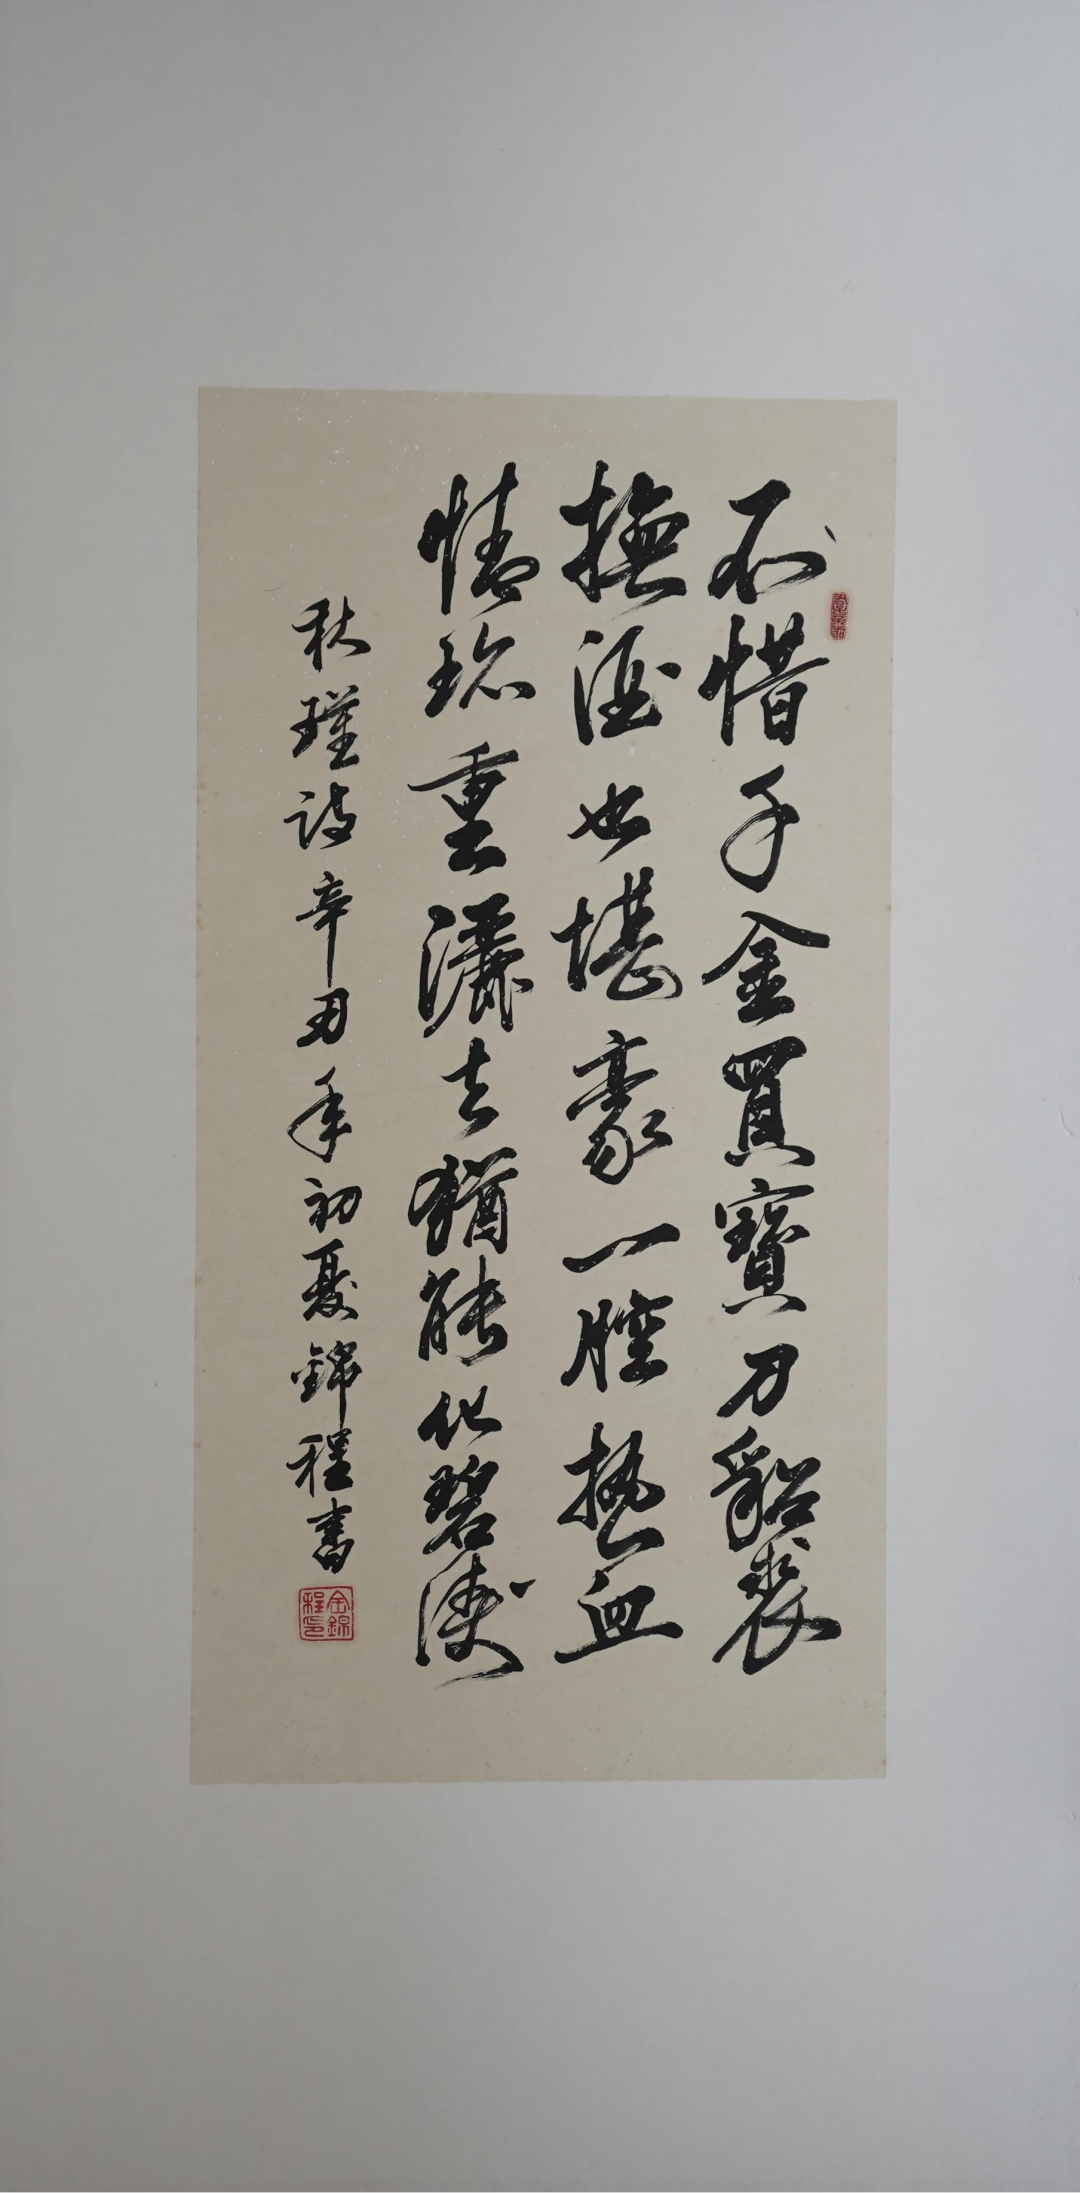 不惜千金買寶刀貂裘
換酒也堪豪一腔熱血
情珎重灑去猶能化碧濤
秋瑾詩辛丑年初夏錦程書
金錦程印